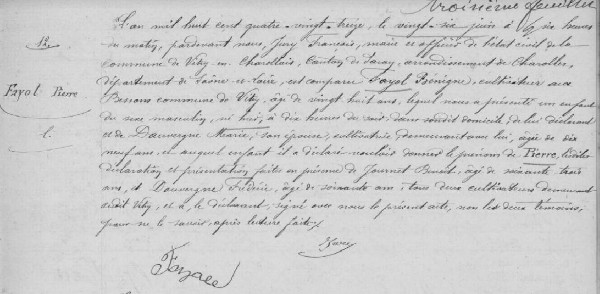 troisième feuillet
L'an mil huit cent quatre-vingt-treize, le vingt-six juin à six heures
du matin, pardevant nous, Jury Français, maire et officier de l'état civil de la
commune de Vitry-en-Charollais, Canton de Paray, arrondissement de Charolles,
département de Saône-et-Loire, est comparu Fayol Bénigne, cultivateur aux
commune de Vitry, âgé de vingt huit ans, lequel nous a présenté un enfant
Fayol Pierre
du sexe masculin, né hier, à dix heures du soir, dans sondit domicile, de lui déclarant
et de Dauvergne Marie, son épouse, cultivatrice demeurant avec lui, âgée de dix
neuf ans, et auquel enfant il a déclaré vouloir donner le prénom de Pierre, lesdites
déclaration et présentation faites en présence de Journet Benoit, âgé de soixante trois
ans, et Dauvergne Frédéric, âgé de soixante ans, tous deux cultivateurs demeurant
audit Vitry, et a, le déclarant, signé avec nous le présent acte, non les deux témoins,
pour ne le savoir, après lecture faite
Fayol